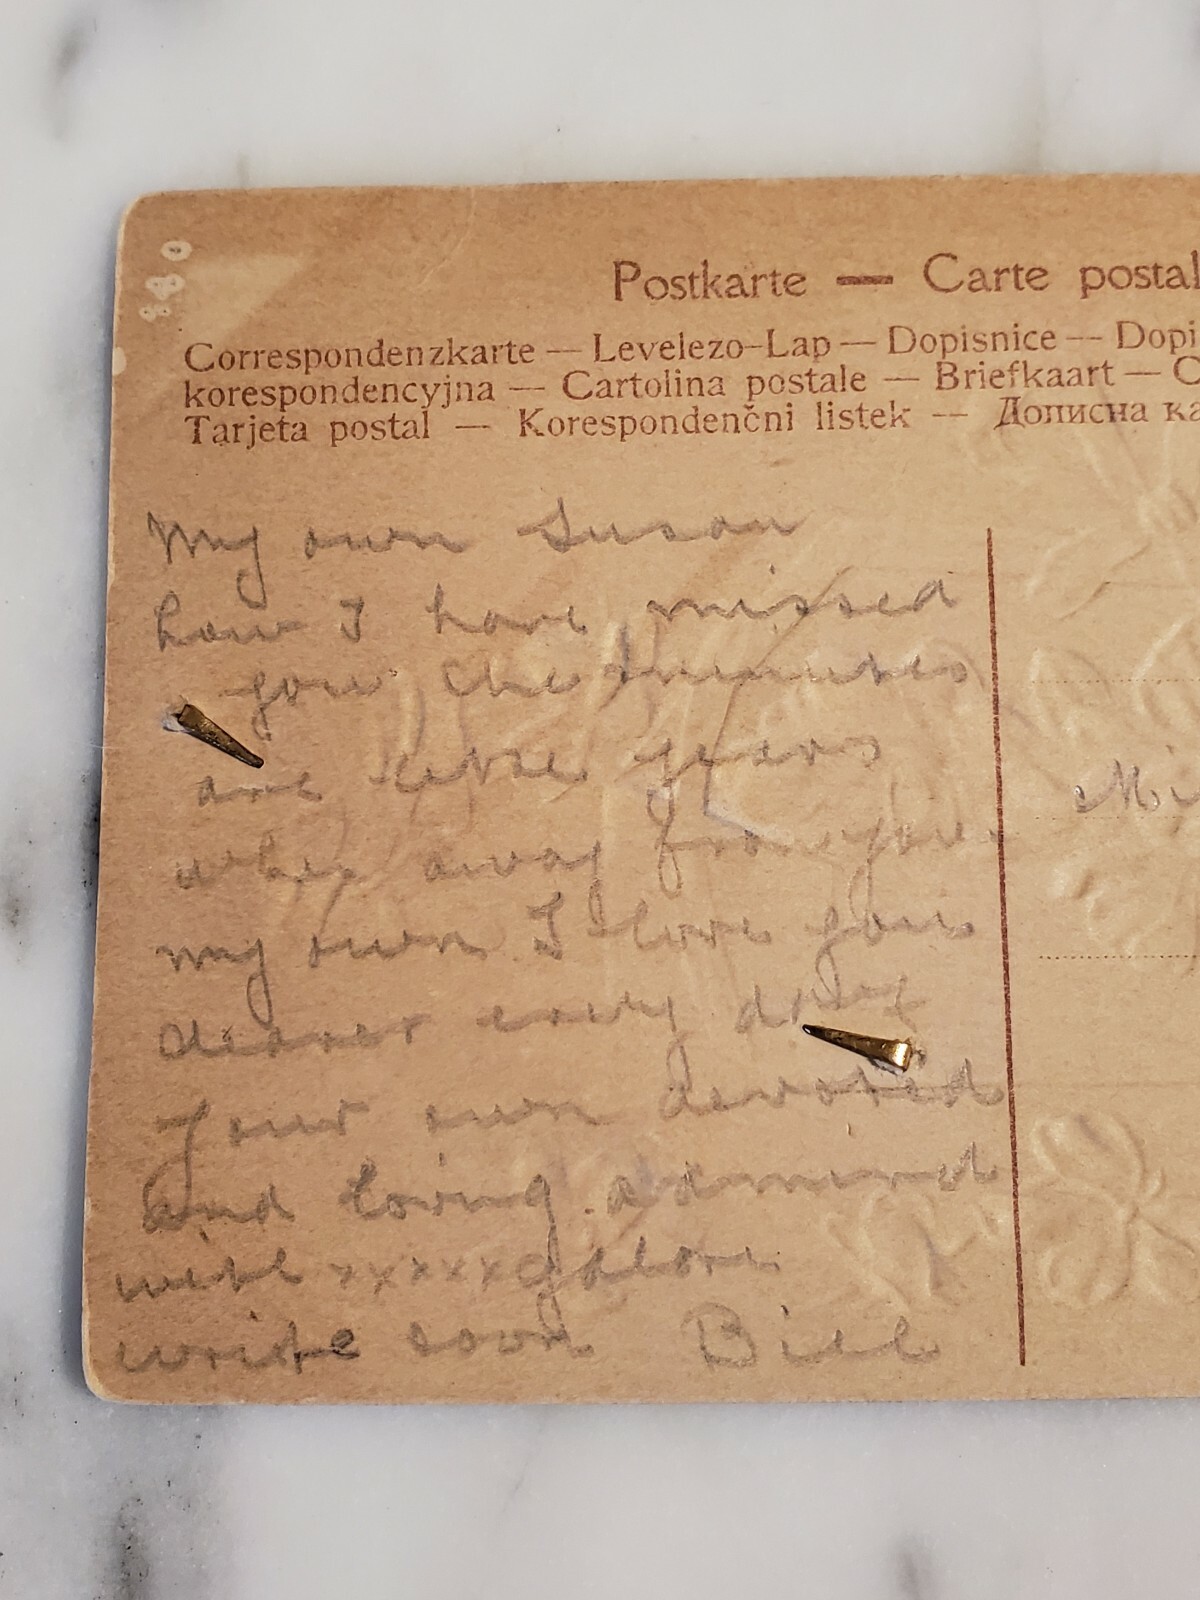 Postkarte — Carte postal
Correspondenzkarte — Levelezo-Lap — Dopisnice — Dopi
korespondencyjna — Cartolina postale — Briefkaart — C
Tarjeta postal — Korespondenčni listek — Дописна ка
My own Susan
how I have missed
you the minutes
are like years
when away from you.
my own I love you
dearer every day
Your own devoted
and loving
with xxxxx galore
write soon Bill
Mi